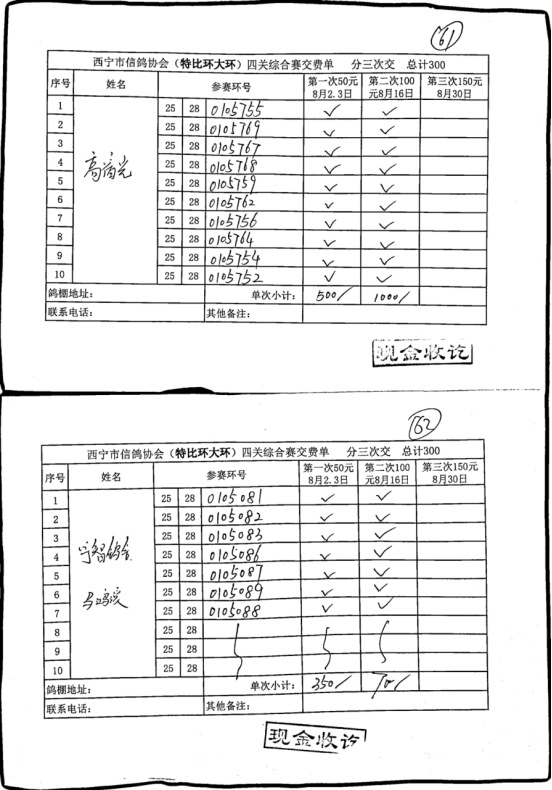 61
西宁市信鸽协会（特比环大环）四关综合赛交费单 分三次交 总计300
序号 姓名 参赛环号 第一次50元 8月2.3日 第二次100元8月16日 第三次150元 8月30日
1 25 28 0105755 ✓ ✓
2 25 28 0105769 ✓ ✓
3 25 28 0105767 ✓ ✓
4 25 28 0105768 ✓ ✓
5 25 28 0105759 ✓ ✓
6 25 28 0105762 ✓ ✓
7 25 28 0105756 ✓ ✓
8 25 28 0105764 ✓ ✓
9 25 28 0105754 ✓ ✓
10 25 28 0105752 ✓ ✓
鸽棚地址： 单次小计： 500/ 1000/
联系电话： 其他备注：
现金收讫
62
西宁市信鸽协会（特比环大环）四关综合赛交费单 分三次交 总计300
序号 姓名 参赛环号 第一次50元 8月2.3日 第二次100元8月16日 第三次150元 8月30日
1 25 28 0105081 ✓ ✓
2 25 28 0105082 ✓ ✓
3 25 28 0105083 ✓ ✓
4 25 28 0105086 ✓ ✓
5 25 28 0105087 ✓ ✓
6 25 28 0105089 ✓ ✓
7 25 28 0105088 ✓ ✓
8 25 28
9 25 28
10 25 28
鸽棚地址： 单次小计： 350/ 70/
联系电话： 其他备注：
现金收讫